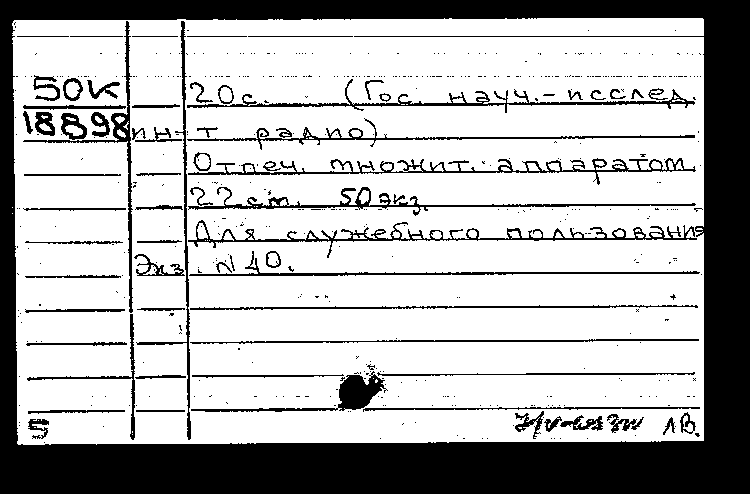 50К 20с. (Гос. науч.-исслед.
18898 ин-т радио).
Отпеч. множит. аппаратом.
22 см. 50 экз.
Для служебного пользования
Экз. N 40.
5 ЛВ.